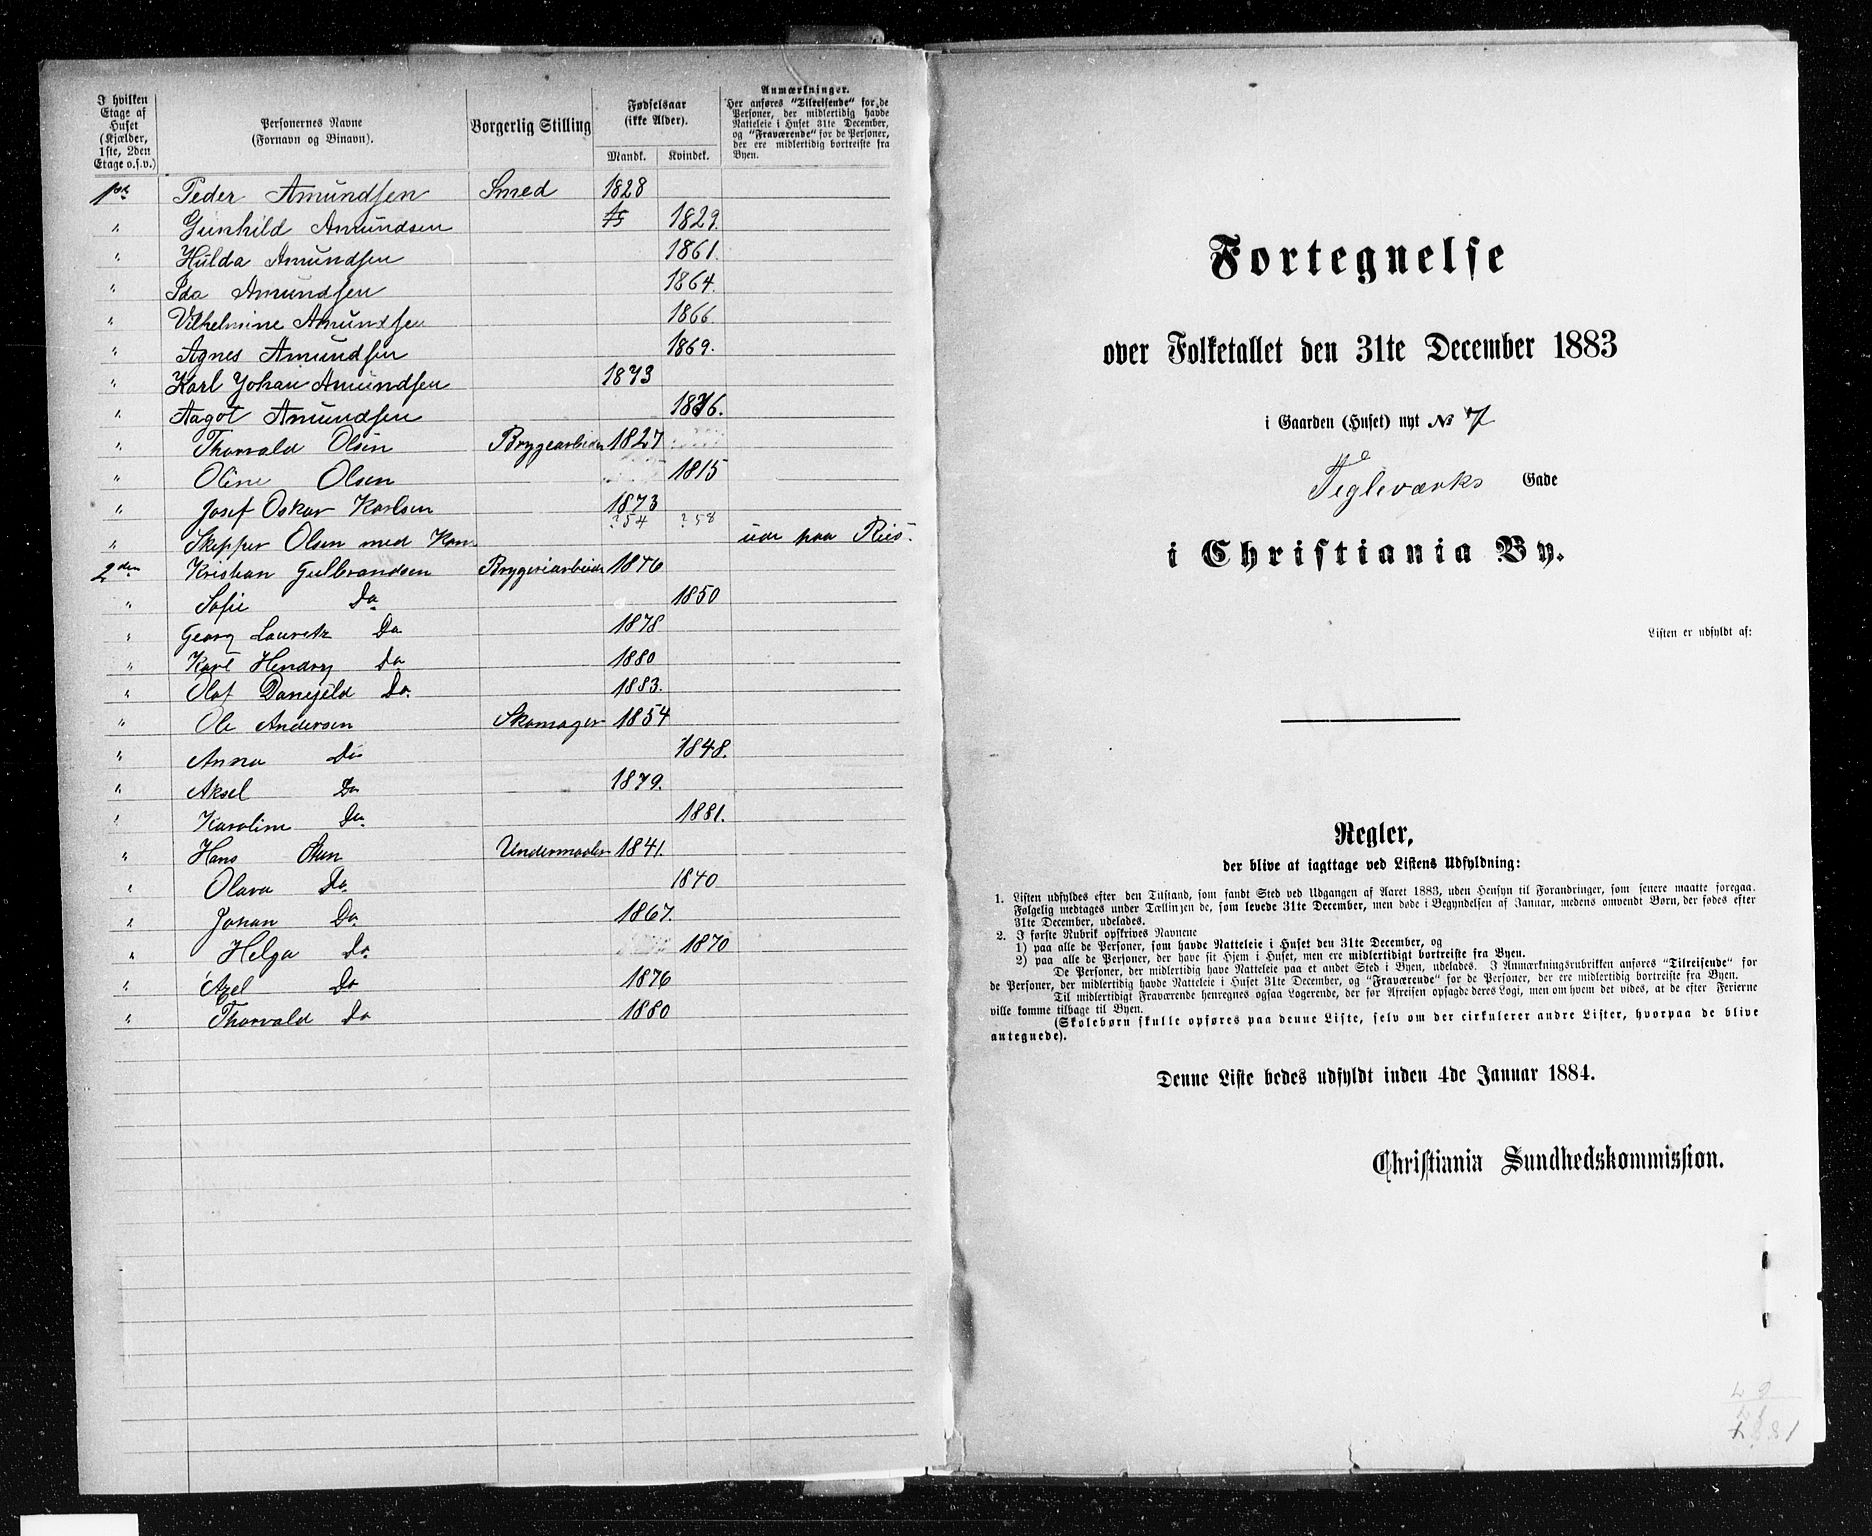 I hvilken
Etage af
Huset
(Kjælder,
1ste, 2den
Etage o.s.v.)
Personernes Navne
(Fornavn og Binavn).
Borgerlig Stilling
Fødselsaar
(ikke Alder).
Mandk. Kvindek.
Anmærkninger.
Her anføres "Tilreisende" for de
Personer, der midlertidig havde
Natteleie i Huset 31te December,
og "Fraværende" for de Personer,
der ere midlertidig bortreiste fra
Byen.
Peder Amundsen Smed 1828
" Gunhild Amundsen 1829.
" Hulda Amundsen 1861.
" Ida Amundsen 1864.
" Vilhelmine Amundsen 1866
" Agnes Amundsen 1869.
" Karl Johan Amundsen 1873
" Aagot Amundsen 1876.
" Thorvald Olsen Bryggearbeider 1827
" Oline Olsen 1815
" Josef Oskar Karlsen 1873
?54 ?58
" Skipper Olsen med Kone paa
2den Kristian Gulbrandsen Bryggeriarbeider
" Sofie Do 1850
" Georg Lauretz Do 1878
" Karl Hendry Do 1880
" Olaf Do. 1883.
" Ole Andersen Skomager 1854
" Anna Do 1848.
" Aksel Do 1879.
" Karoline Do. 1881.
" Hans Undermaaler 1841.
" Olava Do. 1840
" Johan Do 1867.
" Helga Do 1870
" Axel Do 1876
" Thorvald Do 1880
Fortegnelse
over Folketallet den 31te December 1883
i Gaarden (Huset) nyt № 7
Teglværks Gade
i Christiania By.
Listen er udfyldt af:
Regler,
der blive at iagttage ved Listens Udfyldning:
1. Listen udfyldes efter den Tilstand, som fandt Sted ved Udgangen af Aaret 1883, uden Hensyn til Forandringer, som senere maatte foregaa.
Følgelig medtages under Tællingen de, som levede 31te December, men døde i Begyndelsen af Januar, medens omvendt Børn, der fødes efter
31te December, udelades.
2. I første Rubrik opskrives Navnene
1) paa alle de Personer, som havde Natteleie i Huset den 31te December, og
2) paa alle de Personer, der have sit Hjem i Huset, men ere midlertidigt bortreiste fra Byen.
De Personer, der midlertidig have Natteleie paa et andet Sted i Byen, udelades. I Anmærkningsrubrikken anføres "Tilreisende" for
de Personer, der midlertidig havde Natteleie i Huset 31te December, og "Fraværende" for de Personer, der ere midlertidig bortreiste fra Byen.
Til midlertidigt Fraværende henregnes ogsaa Logerende, der før Afreisen opsagde deres Logi, men om hvem det vides, at de efter Ferierne
ville komme tilbage til Byen.
(Skolebørn skulle opføres paa denne Liste, selv om der cirkulerer andre Lister, hvorpaa de blive
antegnede).
Denne Liste bedes udfyldt inden 4de Januar 1884.
Christiania Sundhedskommission.